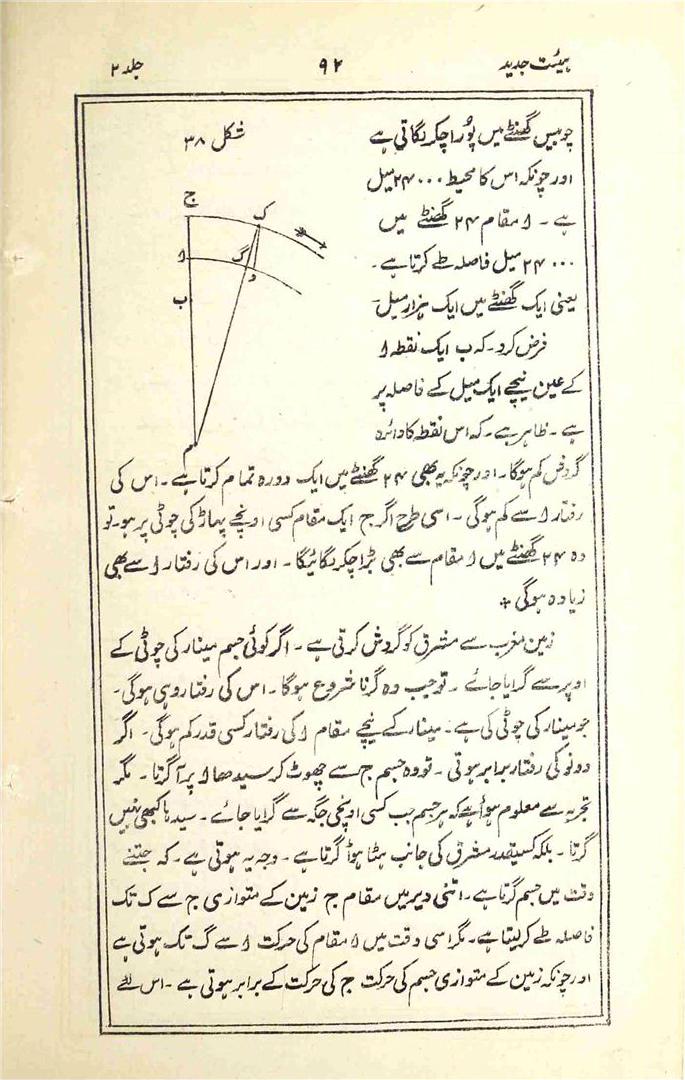 ہیئت جدید ۹۲ جلد ۲
شکل ۳۸
ج
ک
ا
گ
د
ب
م
چوبیس گھنٹے میں پُورا چکر لگاتی ہے
اور چونکہ اس کا محیط ۲۴۰۰۰ میل
ہے ۔ ا مقام ۲۴ گھنٹے میں
۲۴۰۰۰ میل فاصلہ طے کرتا ہے ۔
یعنی ایک گھنٹے میں ایک ہزار میل ۔
فرض کرو ۔ کہ ب ایک نقطہ ا
کے عین نیچے ایک میل کے فاصلہ پر
ہے ۔ ظاہر ہے ۔ کہ اس نقطہ کا دائرہ
گردش کم ہوگا ۔ اور چونکہ یہ بھی ۲۴ گھنٹے میں ایک دورہ تمام کرتا ہے ۔ اس کی
رفتار ا سے کم ہوگی ۔ اسی طرح اگر ج ایک مقام کسی اونچے پہاڑ کی چوٹی پر ہو ۔ تو
وہ ۲۴ گھنٹے میں ا مقام سے بھی بڑا چکر لگائیگا ۔ اور اس کی رفتار ا سے بھی
زیادہ ہوگی +
زمین مغرب سے مشرق کو گردش کرتی ہے ۔ اگر کوئی جسم مینار کی چوٹی کے
اوپر سے گرایا جائے ۔ توجب وہ گرنا شروع ہوگا ۔ اس کی رفتار وہی ہوگی ۔
جو مینار کی چوٹی کی ہے ۔ مینار کے نیچے مقام ا کی رفتار کسی قدر کم ہوگی ۔ اگر
دونو کی رفتار برابر ہوتی ۔ تو وہ جسم ج سے چھوٹ کر سیدھا ا پر آ گرتا ۔ مگر
تجربہ سے معلوم ہوأ ہے کہ ہر جسم جب کسی اونچی جگہ سے گرایا جائے ۔ سیدہا کبھی نہیں
گرتا ۔ بلکہ کسیقدر مشرق کی جانب ہٹا ہوأ گرتا ہے ۔ وجہ یہ ہوتی ہے ۔ کہ جتنے
وقت میں جسم گرتا ہے ۔ اتنی دیر میں مقام ج زمین کے متوازی ج سے ک تک
فاصلہ طے کر لیتا ہے ۔ مگر اسی وقت میں ا مقام کی حرکت ا سے گ تک ہوتی ہے
اور چونکہ زمین کے متوازی جسم کی حرکت ج کی حرکت کے برابر ہوتی ہے ۔ اس لئے